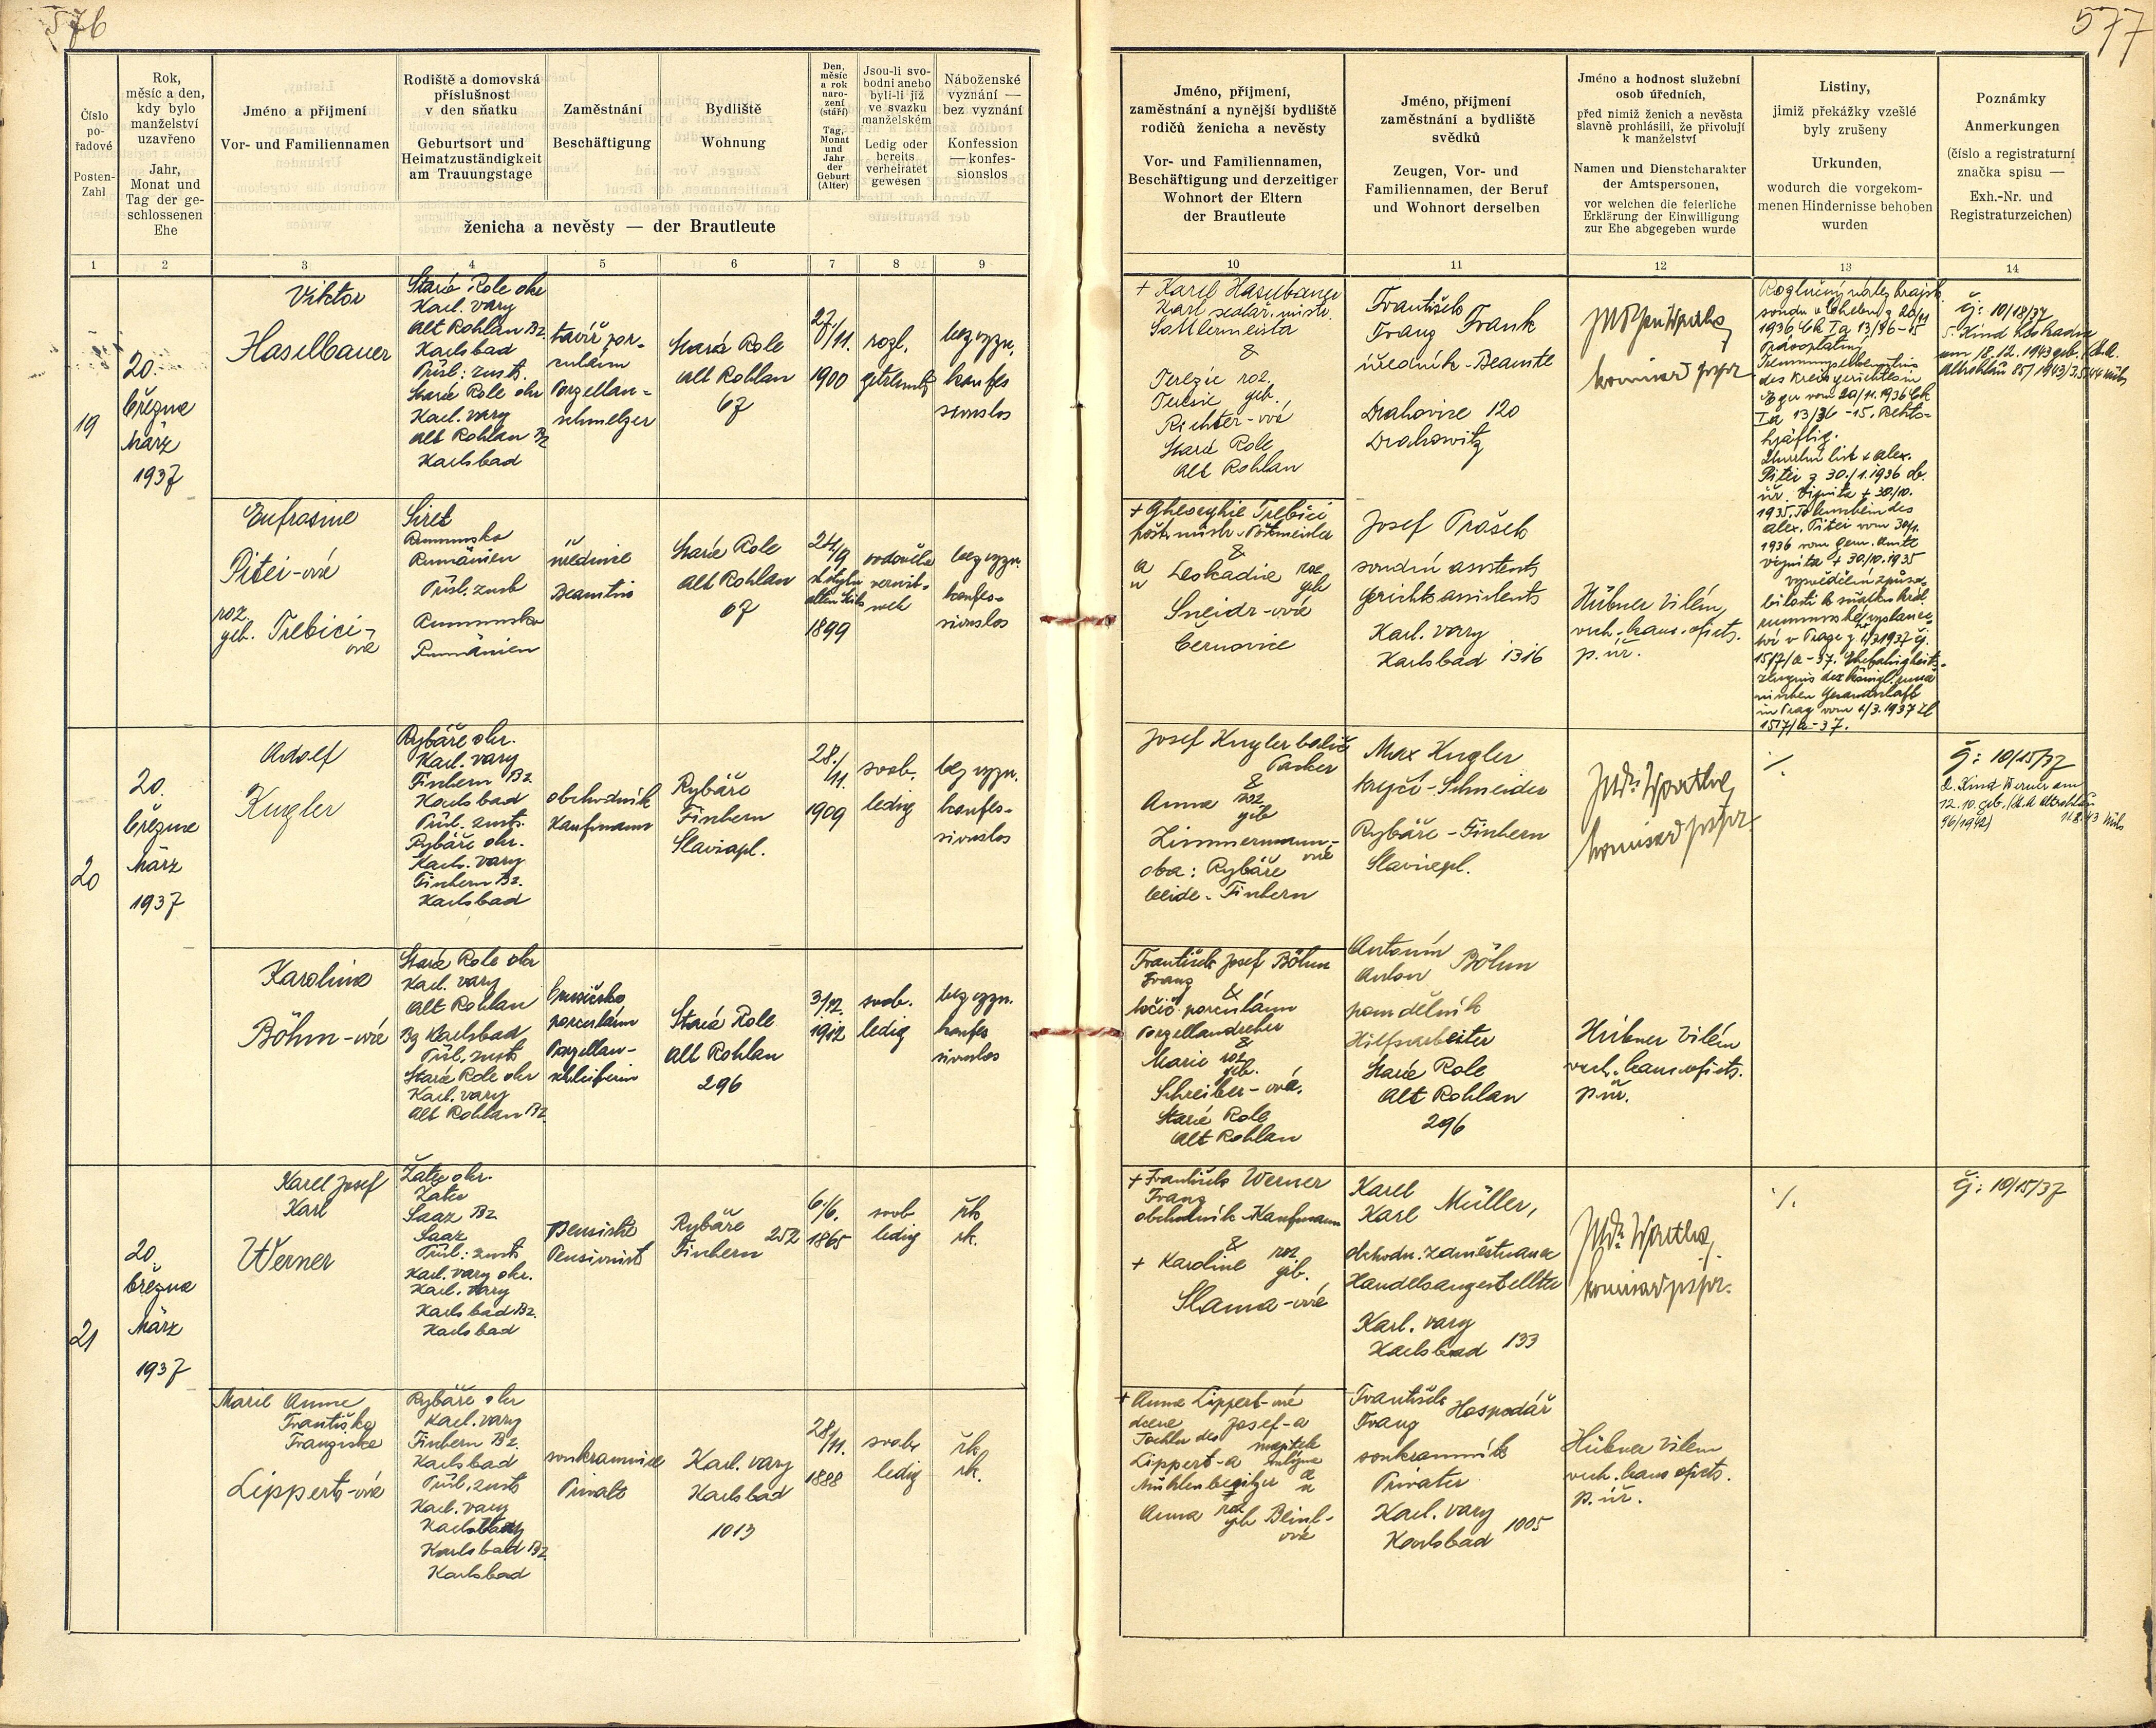 576
577
Číslo
po-
řadové
Posten-
Zahl
Rok,
měsíc a den,
kdy bylo
manželství
uzavřeno
Jahr,
Monat und
Tag der ge-
schlossenen
Ehe
Jméno a příjmení
Vor- und Familiennamen
Rodiště a domovská
příslušnost
v den sňatku
Geburtsort und
Heimatzuständigkeit
am Trauungstage
Zaměstnání
Beschäftigung
Bydliště
Wohnung
Den,
měsíc
a rok
naro-
zení
(stáří)
Tag,
Monat
und
Jahr
der
Geburt
(Alter)
Jsou-li svo-
bodni anebo
byli-li již
ve svazku
manželském
Ledig oder
bereits
verheiratet
gewesen
Náboženské
vyznání —
bez vyznání
Konfession
— konfes-
sionslos
ženicha a nevěsty — der Brautleute
1 2 3 4 5 6 7 8 9
Jméno, příjmení,
zaměstnání a nynější bydliště
rodičů ženicha a nevěsty
Vor- und Familiennamen,
Beschäftigung und derzeitiger
Wohnort der Eltern
der Brautleute
Jméno, příjmení
zaměstnání a bydliště
svědků
Zeugen, Vor- und
Familiennamen, der Beruf
und Wohnort derselben
Jméno a hodnost služební
osob úředních,
před nimiž ženich a nevěsta
slavně prohlásili, že přivolují
k manželství
Namen und Dienstcharakter
der Amtspersonen,
vor welchen die feierliche
Erklärung der Einwilligung
zur Ehe abgegeben wurde
Listiny,
jimiž překážky vzešlé
byly zrušeny
Urkunden,
wodurch die vorgekom-
menen Hindernisse behoben
wurden
Poznámky
Anmerkungen
(číslo a registraturní
značka spisu —
Exh.-Nr. und
Registraturzeichen)
10 11 12 13 14
19
20.
března
März
1937
Viktor
Haselbauer
Stará Role okr
Karl. vary
Alt Rohlau Bz
Karlsbad
Přísl: zust.
Stará Role okr
Karl. vary
Alt Rohlau Bz
Karlsbad
tavič por-
culánu
Porzellan-
schmelzer
Stará Role
Alt Rohlau
67
27./11.
1900
rozl.
getrennt
bez vyzn.
konfes
sionslos
+ Karel Haselbauer
Karl sedlář. mistr.
Sattlermeister
&
Terezie roz.
Teresie geb.
Richter-ové
Stará Role
Alt Rohlau
František
Franz Frank
úředník - Beamte
Drahovice 120
Drahowitz
komisař
Rozlučný nález krajsk.
soudu v Chebu z 20/11
1936 Čk Ia 13/36-15
Právoplatný
des Kreisgerichtes in
Eger vom 20/11.1936 Čk
Ia 13/36 - 15. Rechts-
kräftig.
Úmrtní list + Alex.
Pitei z 30./1.1936 ob.
úř. Vijnita + 30/10.
1935. Totenschein des
Alex. Pitei vom 30/1.
1936 vom Gem. Amte
Vijnita + 30/10.1935
vysvědčení způso-
bilosti k sňatku král.
rumunské vyslanec-
tví v Praze z 1/3 1937 čj.
1517/a-37. Ehefähigkeits-
zeugnis der königl. rumä
nischen Gesandschaft
in Prag vom 1/3.1937 Zl
1517/a-37.
čj: 10/18/37
am 18.12.1943 geb.
Altrohlau 85/1943/
Eufrosine
Pitei-ová
roz.
geb. Trebici-
ová
Siret
Rumunsko
Rumänien
Přísl. zust
Rumunsko
Rumänien
úřednice
Beamtin
Stará Role
Alt Rohlau
67
24/9
1899
vdověla
verwit-
wet
bez vyzn.
konfes-
sionslos
+ Gheorghie Trebici
pošt. mistr. Postmeister
&
a
u Leokadie roz
geb
Sneidr-ové
Černovice
Josef Prošek
soudní asistent
Gerichtsassistent
Karl. vary
Karlsbad 1316
Hübner Vilém
vrch. kanc. ofic.
p. úř.
20
20.
března
März
1937
Adolf
Kugler
Rybáře okr.
Karl. vary
Fischern Bz
Karlsbad
Přísl. zust.
Rybáře okr.
Karl. vary
Fischern Bz.
Karlsbad
obchodník
Kaufmann
Rybáře
Fischern
Slaviapl.
28./11.
1909
svob.
ledig
bez vyzn.
konfes-
sionslos
Josef Kugler balič
Packer
&
Anna roz
geb
Zimmermann-
ové
oba: Rybáře
beide: Fischern
Max Kugler
krejčí - Schneider
Rybáře - Fischern
Slaviepl.
komisař
./.
čj: 10/15/37
2. Kind Werner am
12.10. geb. Altrohlau
96/1942/
Karolina
Böhm-ová
Stará Role okr
Karl. vary
Alt Rohlau
Bz Karlsbad
Přísl. zust
Stará Role okr
Karl. vary
Alt Rohlau Bz.
brusička
porculánu
Porzellan-
schleiferin
Stará Role
Alt Rohlau
296
3/12.
1912
svob.
ledig
bez vyzn.
konfes
sionslos
František Josef Böhm
Franz
&
točič porculánu
Porzellandreher
&
Marie roz
geb.
Schreiber-ová.
Stará Role
Alt Rohlau
Antonín
Anton Böhm
pom dělník
Hilfsarbeiter
Stará Role
Alt Rohlau
296
Hübner Vilém
vrch. kanc. ofic.
p. úř.
21
20.
března
März
1937
Karel Josef
Karl
Werner
Žatec okr.
Žatec
Saaz Bz
Saaz
Přísl: zust
Karl. vary okr.
Karl. vary
Karlsbad Bz.
Karlsbad
Pensista
Pensionist
Rybáře 252
Fischern
6./6.
1865
svob
ledig
řk
rk.
+ František Werner
Franz
obchodník Kaufmann
&
+ Karoline roz
geb.
Slama-ové
Karel
Karl Müller,
obchodn. zaměstnanec
Handelsangestellter
Karl. vary
Karlsbad 133
komisař
./.
čj: 10/15/37
Marie Anna
Františka
Franziska
Lippert-ová
Rybáře okr
Karl. vary
Fischern Bz.
Karlsbad
Přísl. zust
Karl. vary
Karlsbad Bz
Karlsbad
soukromnice
Privat
Karl. vary
Karlsbad
1013
28/11.
1888
svob.
ledig
řk.
rk.
+ Anna Lippert-ové
dcera Josef-a
Tochter des majitele
Lippert-a mlýna
Mühlenbesitzer a
u
Anna roz
geb Beinl-
ové
František
Franz Hospodář
soukromník
Privater
Karl. vary
Karlsbad 1005
Hübner Vilém
vrch. kanc. ofic.
p. úř.